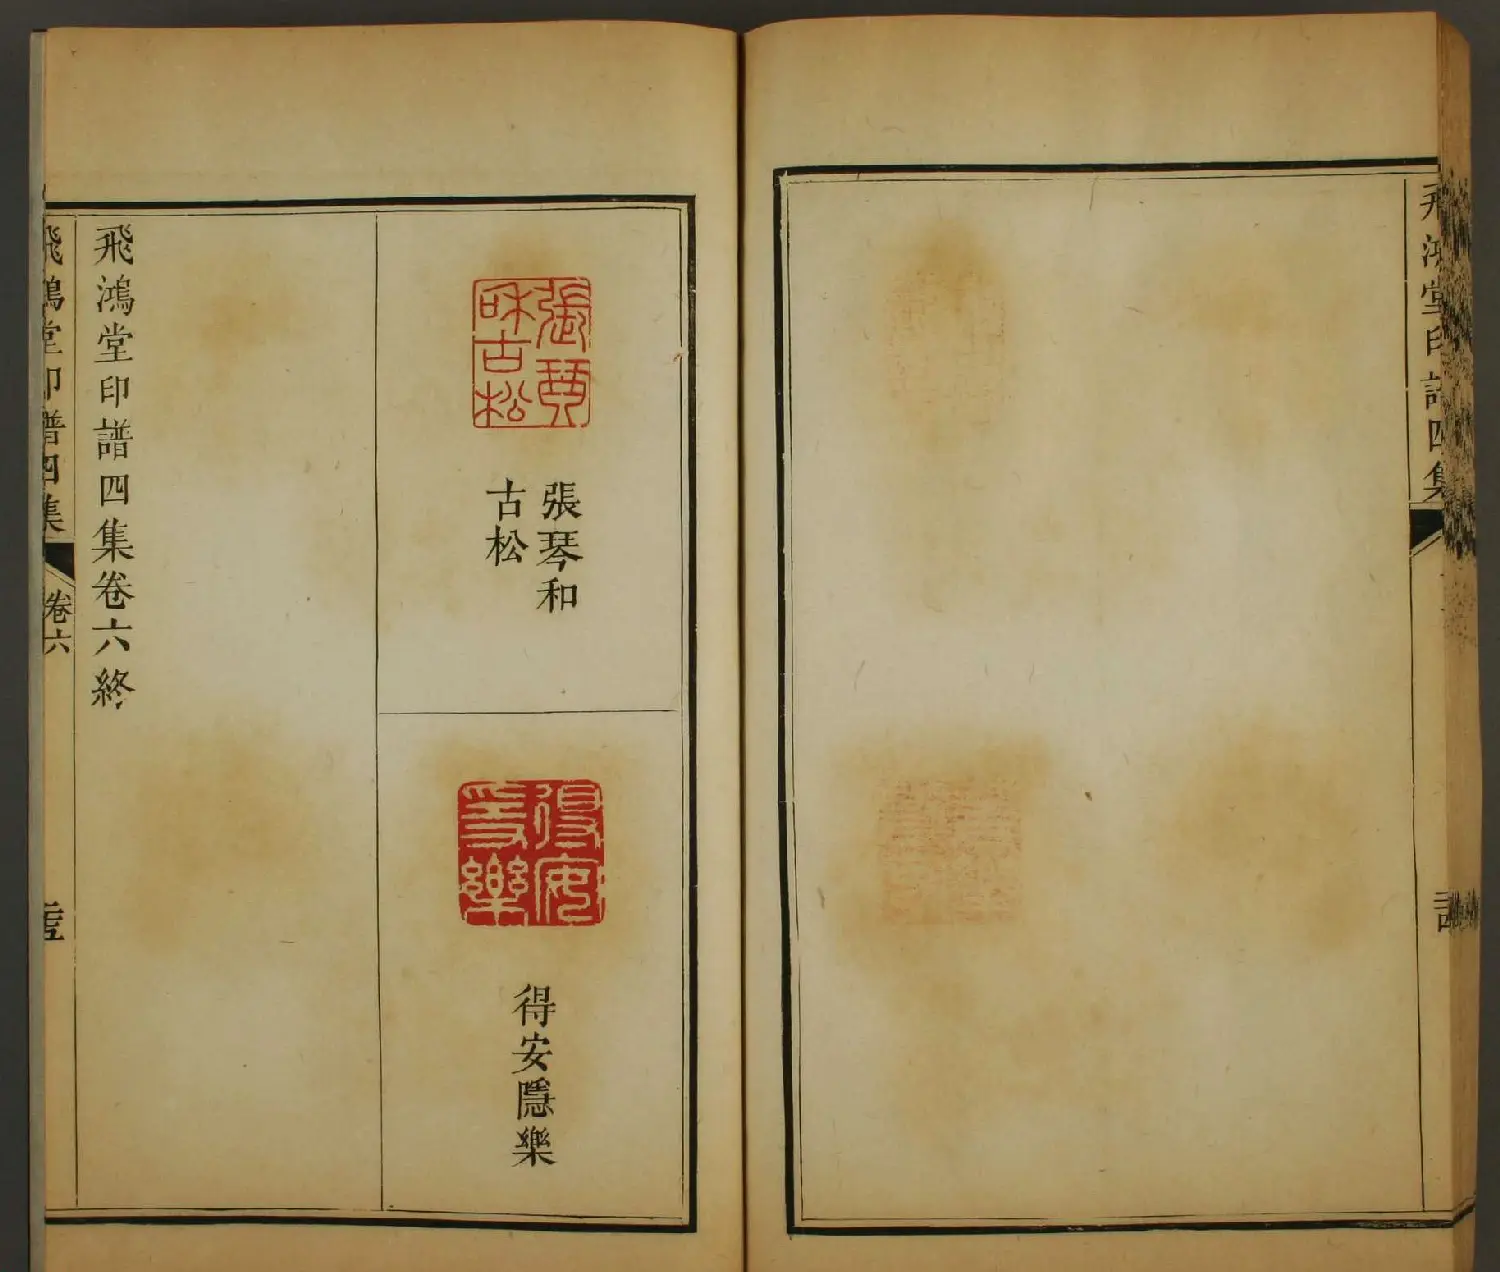 飛鴻堂印譜四集
張琴和古松
張琴和
古松
得安㥯樂
得安隱樂
飛鴻堂印譜四集卷六終
飛鴻堂印譜四集
卷六